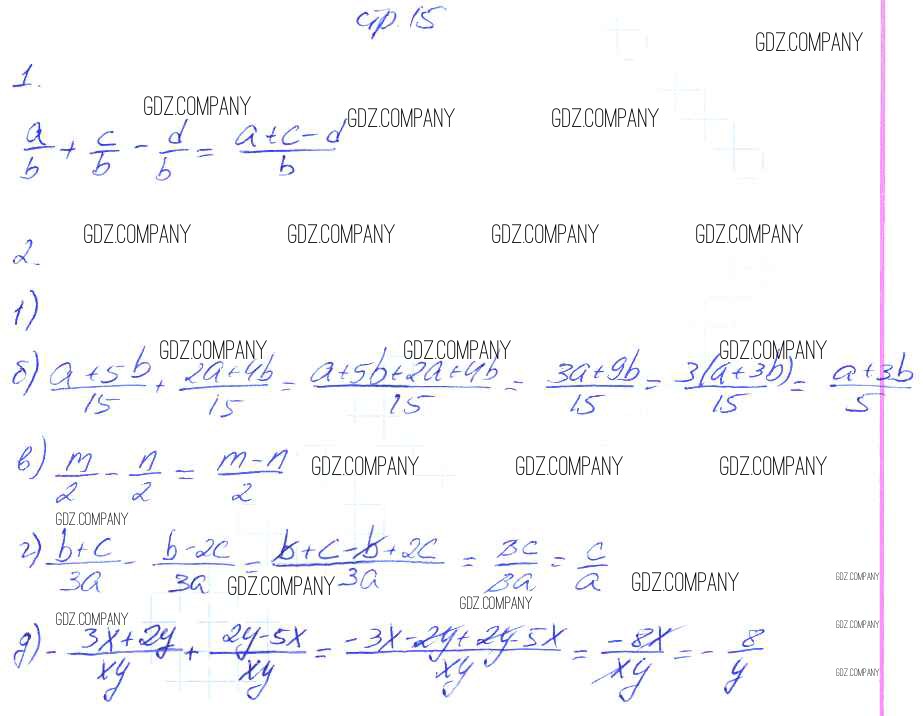 стр. 15
GDZ.COMPANY
1.
GDZ.COMPANY GDZ.COMPANY GDZ.COMPANY
a/b + c/b - d/b = (a+c-d)/b
GDZ.COMPANY GDZ.COMPANY GDZ.COMPANY GDZ.COMPANY
2.
1)
GDZ.COMPANY GDZ.COMPANY GDZ.COMPANY
б) (a+5b)/15 + (2a+4b)/15 = (a+5b+2a+4b)/15 = (3a+9b)/15 = 3(a+3b)/15 = (a+3b)/5
в) m/2 - n/2 = (m-n)/2 GDZ.COMPANY GDZ.COMPANY GDZ.COMPANY
GDZ.COMPANY
г) (b+c)/3a - (b-2c)/3a = (b+c-b+2c)/3a = 3c/3a = c/a
GDZ.COMPANY GDZ.COMPANY GDZ.COMPANY
GDZ.COMPANY
GDZ.COMPANY GDZ.COMPANY
д) - (3x+2y)/xy + (2y-5x)/xy = (-3x-2y+2y-5x)/xy = -8x/xy = - 8/y
GDZ.COMPANY